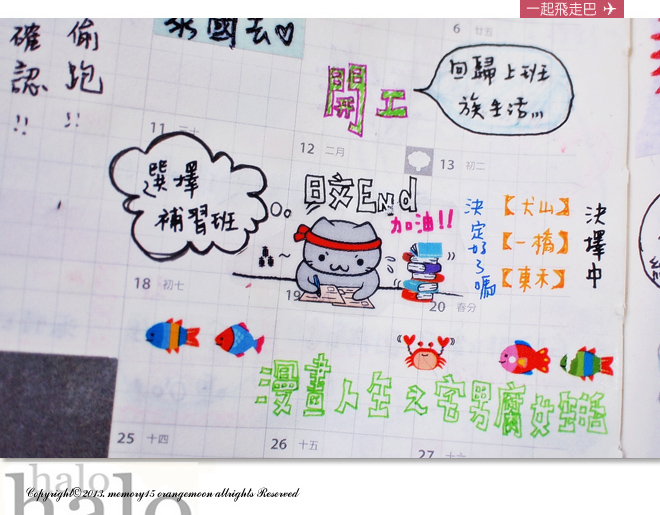 一起飛走巴 ✈
泰國去♡
6 廿五
偷跑!!
確認!!
開工
回歸上班
族生活,,,
11 二十
12 二月
13 初二
選擇
補習班
日文End
加油!!
決定好了嗎
【犬山】
【一橋】
【東禾】
決擇中
18 初七
19
20 春分
漫畫人生之宅男腐女生活
25 十四
26 十五
27 十六
halo
halo
Copyright© 2013. memory15 orangemoon allrights Reserved